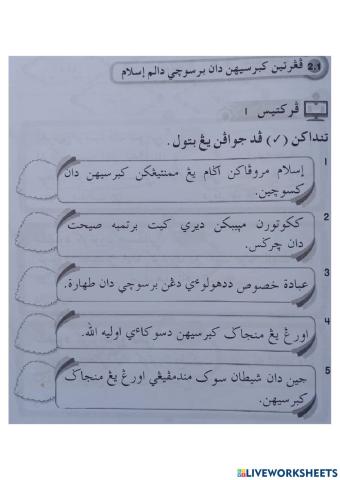 2.1 ڤڠرتين کبرسيهن دان برسوچي دالم إسلام
ڤرکتيس 1
تنداکن (✓) ڤد جواڤن يڠ بتول.
1 إسلام مروڤاکن اݢام يڠ ممنتيڠکن کبرسيهن دان
کسوچين.
2 ککوتورن مڽببکن ديري کيت برتمبه صيحت
دان چرݢس.
3 عبادة خصوص ددهولوءي دڠن برسوچي دان طهارة.
4 اورڠ يڠ منجاݢ کبرسيهن دسوکاءي اوليه الله.
5 جين دان شيطان سوک مندمڤيڠي اورڠ يڠ منجاݢ
کبرسيهن.
LIVEWORKSHEETS